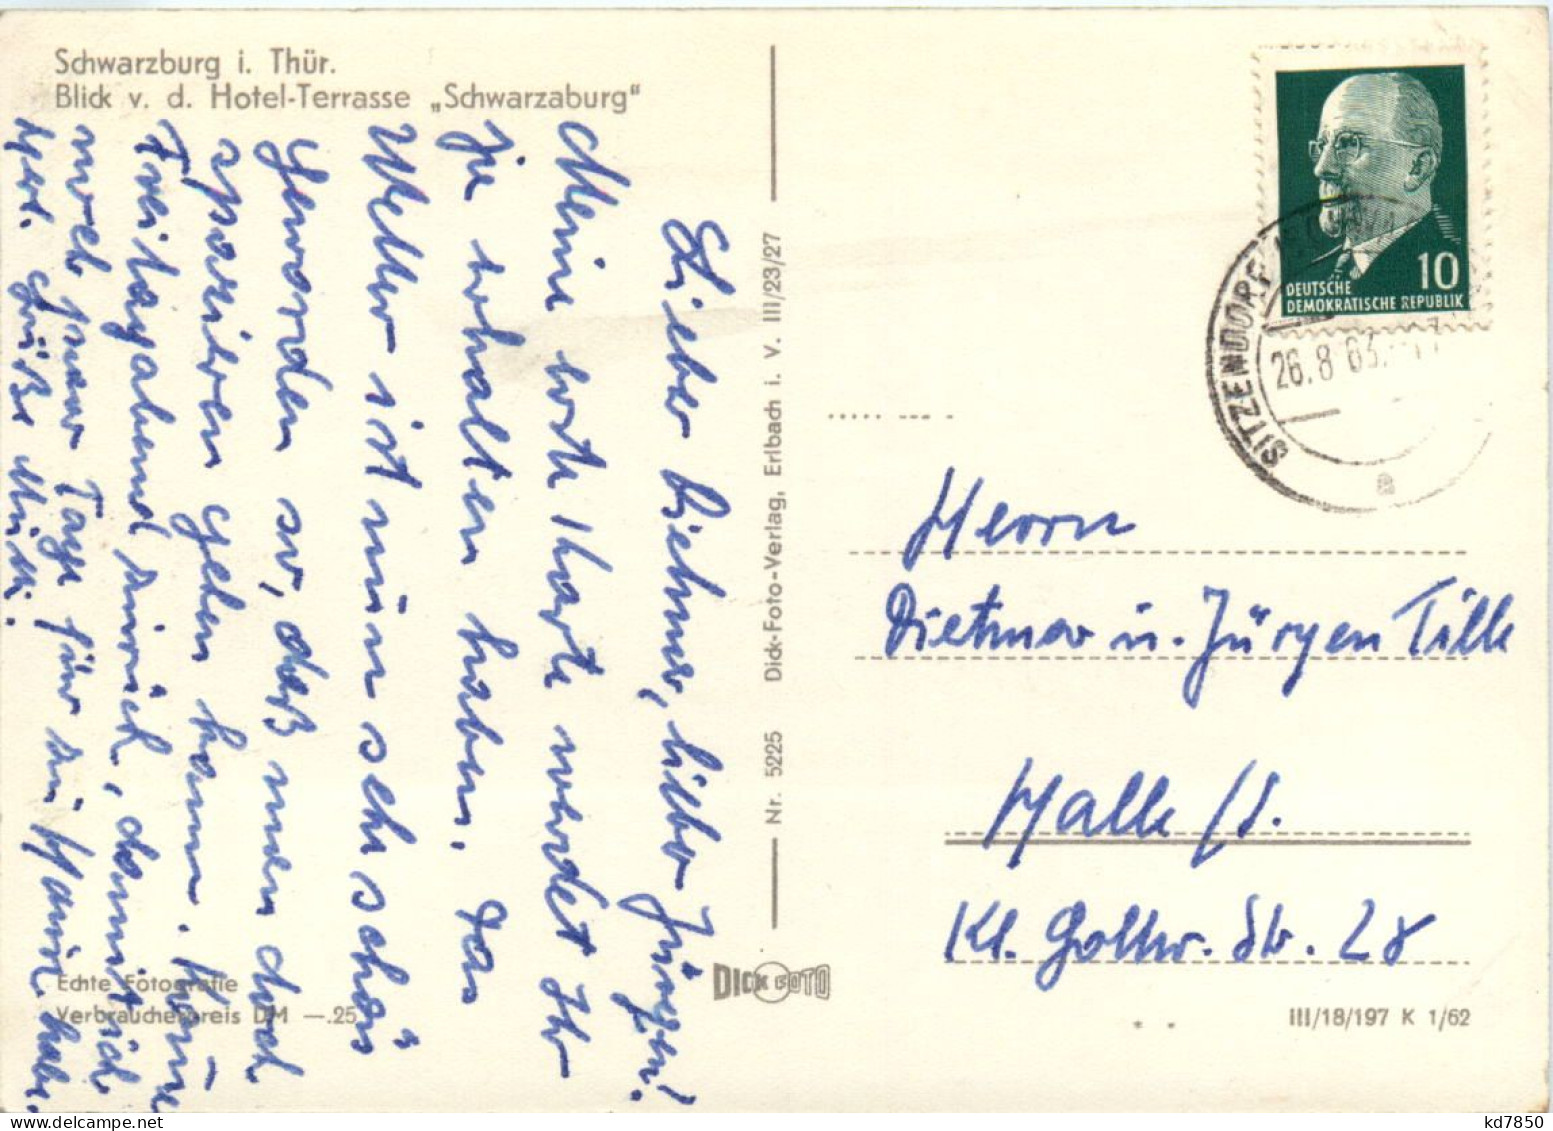 Schwarzburg i. Thür.
Blick v. d. Hotel-Terrasse „Schwarzaburg“
Lieber Dietmar, lieber Jürgen!
Meine erste Karte werdet Ihr
ja erhalten haben. Das
Wetter ist nun sehr schön
geworden so, daß man doch
spazieren gehen kann. Komme
Freitagabend zurück, damit ich
noch paar Tage für zu Hause habe.
Herzl. Grüße Mutti.
Echte Fotografie
Verbraucherpreis DM —.25
Nr. 5225 Dick-Foto-Verlag, Erlbach i. V. III/23/27
DICK FOTO
DEUTSCHE
DEMOKRATISCHE REPUBLIK
10
SITZENDORF
26.8.63
a
Herrn
Dietmar u. Jürgen Tille
Halle /S.
Kl. Str. 28
III/18/197 K 1/62
kd7850